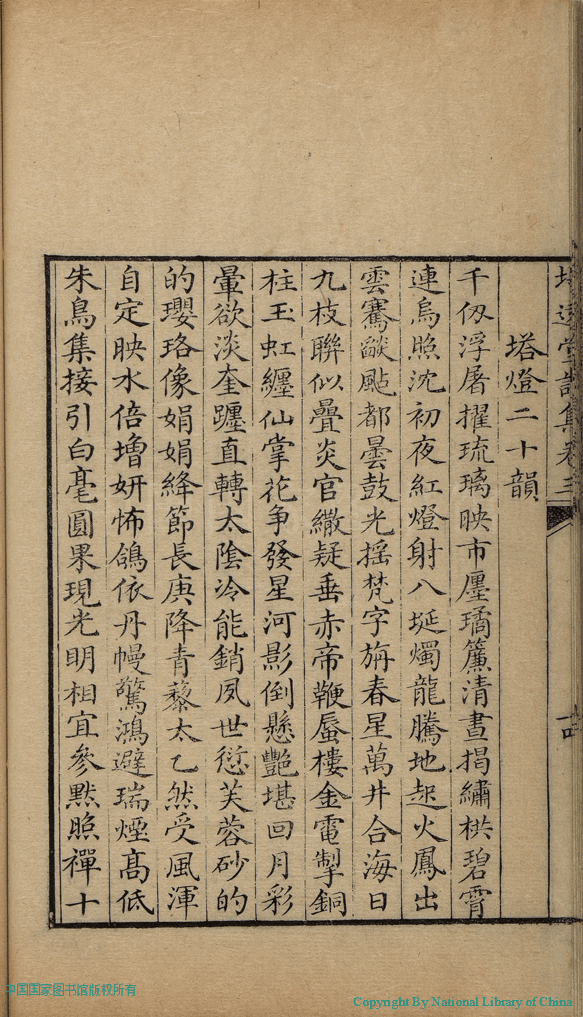 堂詩集卷三
塔燈二十韻
千仭浮屠擢琉璃映市廛璚簾清晝揭繡栱碧霄
連烏照沈初夜紅燈射八埏燭龍騰地起火鳳出
雲騫燄颭都曇鼓光揺梵字旃春星萬井合海日
九枝聯似疊炎官繖疑垂赤帝鞭蜃樓金電掣銅
柱玉虹纒仙掌花争發星河影倒懸艷堪回月彩
暈欲淡奎躔直轉太陰冷能銷夙世愆芙蓉砂的
的瓔珞像娟娟絳節長庚降青藜太乙然受風渾
自定映水倍增妍怖鴿依丹幔驚鴻避瑞煙髙低
朱鳥集接引白毫圓果現光明相宜參黙照禪十
中国国家图书馆版权所有
Copyright By National Library of China